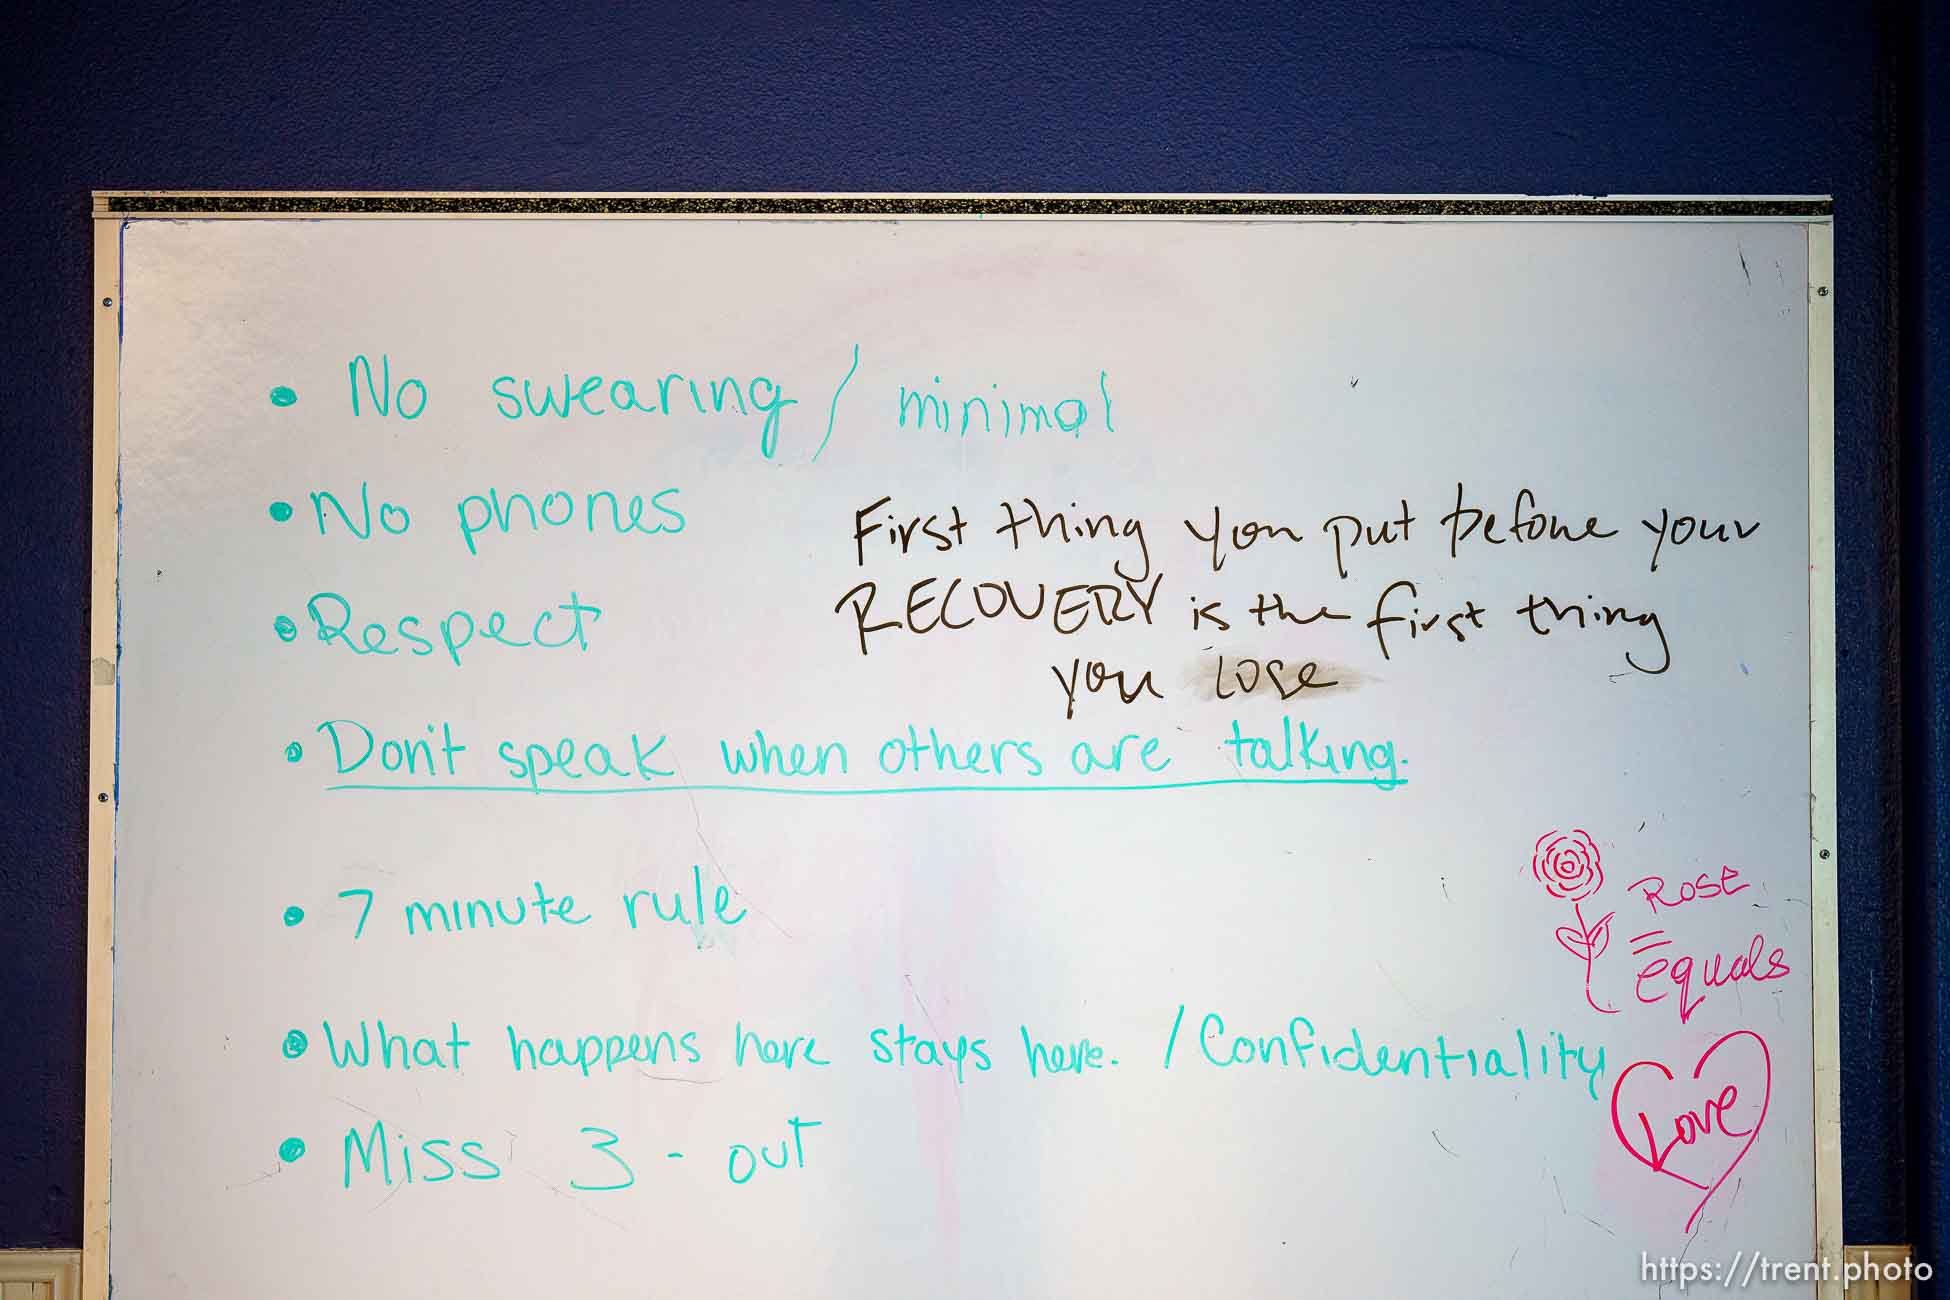 • No swearing / minimal
• No phones
First thing you put before your
RECOVERY is the first thing
you lose
• Respect
• Don't speak when others are talking.
• 7 minute rule
Rose
= equals
• What happens here stays here. / Confidentiality
Love
• Miss 3 - out
https://trent.photo